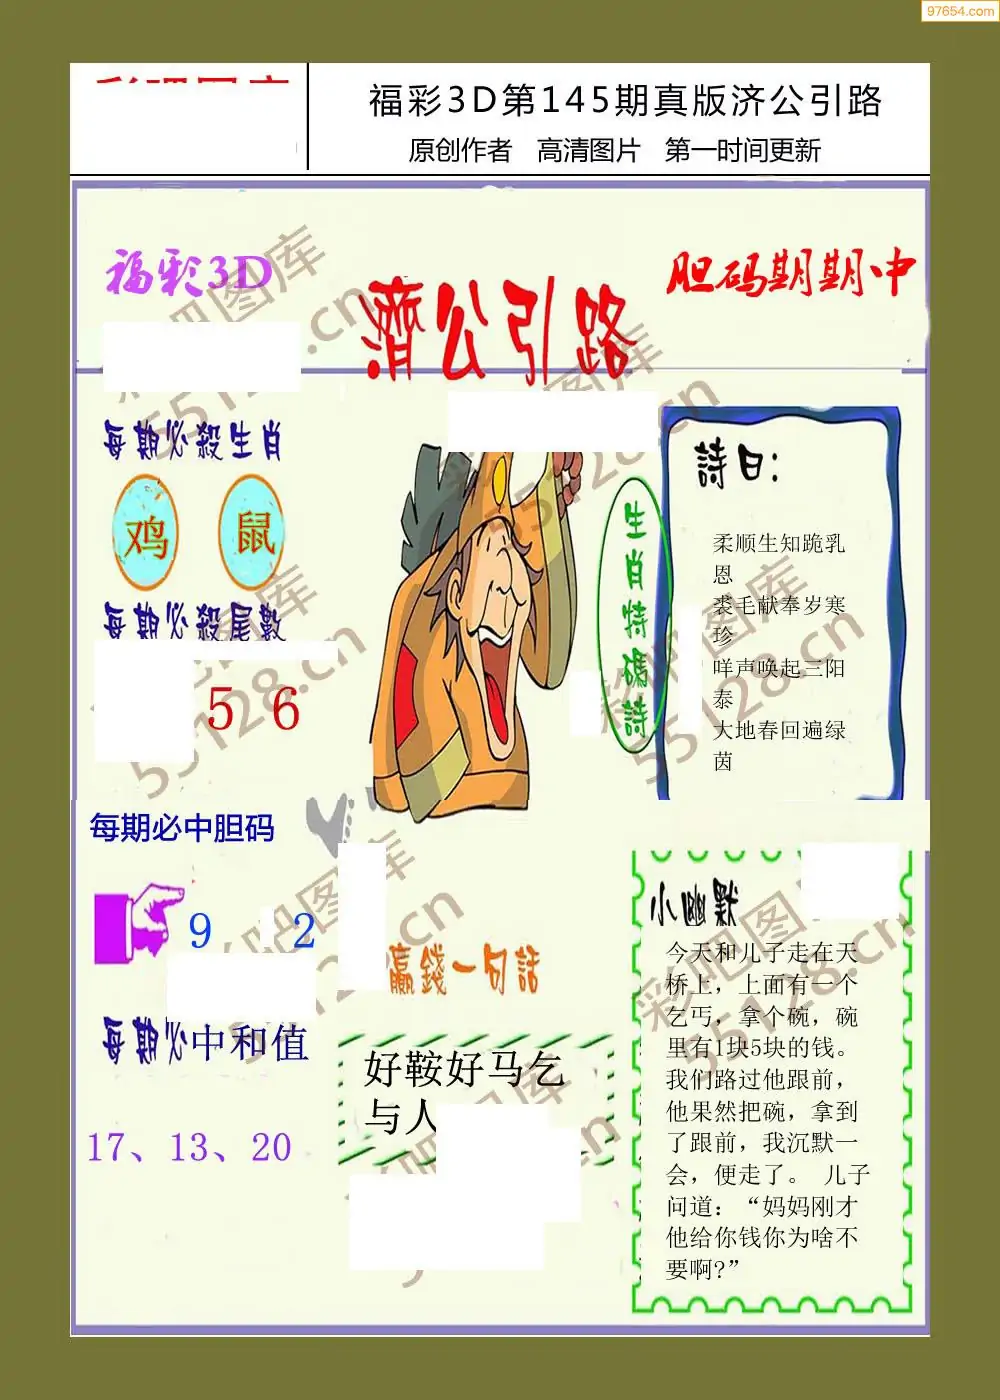 97654.com
福彩3D第145期真版济公引路
原创作者 高清图片 第一时间更新
福彩3D
濟公引路
胆码期期中
每期必殺生肖
鸡 鼠
每期必殺尾數
5 6
生肖特碼詩
詩曰：
柔顺生知跪乳
恩
裘毛献奉岁寒
珍
咩声唤起三阳
泰
大地春回遍绿
茵
每期必中胆码
9 2
每期必中和值
17、13、20
贏錢一句話
好鞍好马乞
与人
小幽默
今天和儿子走在天
桥上，上面有一个
乞丐，拿个碗，碗
里有1块5块的钱。
我们路过他跟前，
他果然把碗，拿到
了跟前，我沉默一
会，便走了。 儿子
问道：“妈妈刚才
他给你钱你为啥不
要啊?”
彩吧图库
55128.cn
彩吧图库
55128.cn
彩吧图库
55128.cn
彩吧图库
55128.cn